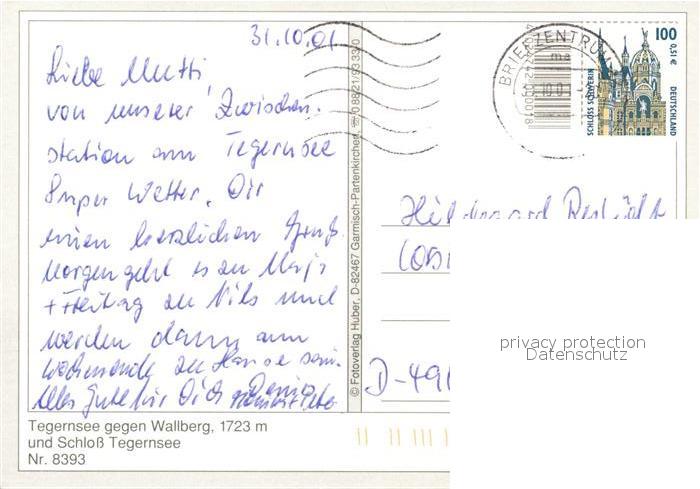 31.10.01
Liebe Mutti
von unserer Zwischen-
station am Tegernsee
Super Wetter. Dir
einen herzlichen Gruß.
Morgen geht es zu
+ Freitag zu Nils und
werden dann am
Wochenende zu Hause sein.
Alles Gute für Dich
Tegernsee gegen Wallberg, 1723 m
und Schloß Tegernsee
Nr. 8393
© Fotoverlag Huber, D-82467 Garmisch-Partenkirchen, ☎ 0 88 21/93 33-0
BRIEFZENTRU
100
0,51 €
SCHLOSS SCHWERIN
DEUTSCHLAND
Hildegard
D-491
privacy protection
Datenschutz